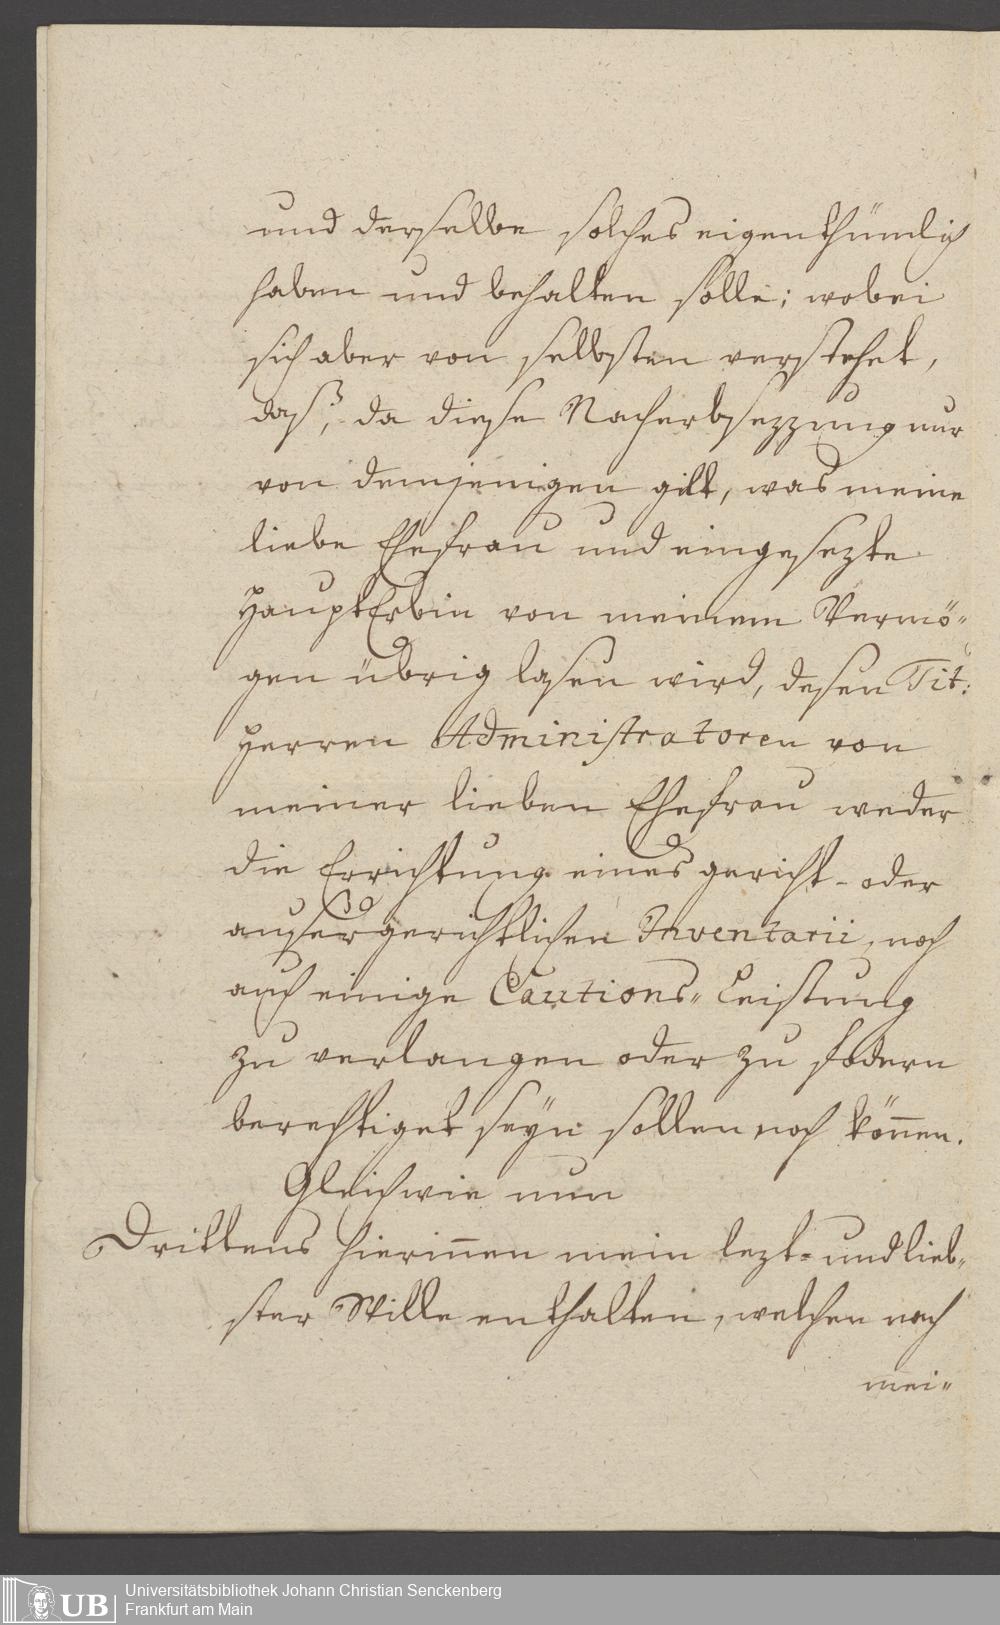 und derselbe solches eigenthümlich
haben und behalten solle; wobei
sich aber von selbsten verstehet,
daß, da diese Nacherbsezzung nur
von demjenigen gilt, was meine
liebe Ehefrau und eingesezte
HauptErbin von meinem Vermö-
gen übrig lasen wird, desen Tit:
Herren Administratoren von
meiner lieben Ehefrau weder
die Errichtung eines gericht- oder
ausergerichtlichen Inventarii, noch
auch einige Cautions-Leistung
zu verlangen oder zu fodern
berechtiget seyn sollen noch können.
Gleichwie nun
Drittens hierinnen mein lezt- und lieb-
ster Wille enthalten, welchen nach
mei-
UB
Universitätsbibliothek Johann Christian Senckenberg
Frankfurt am Main